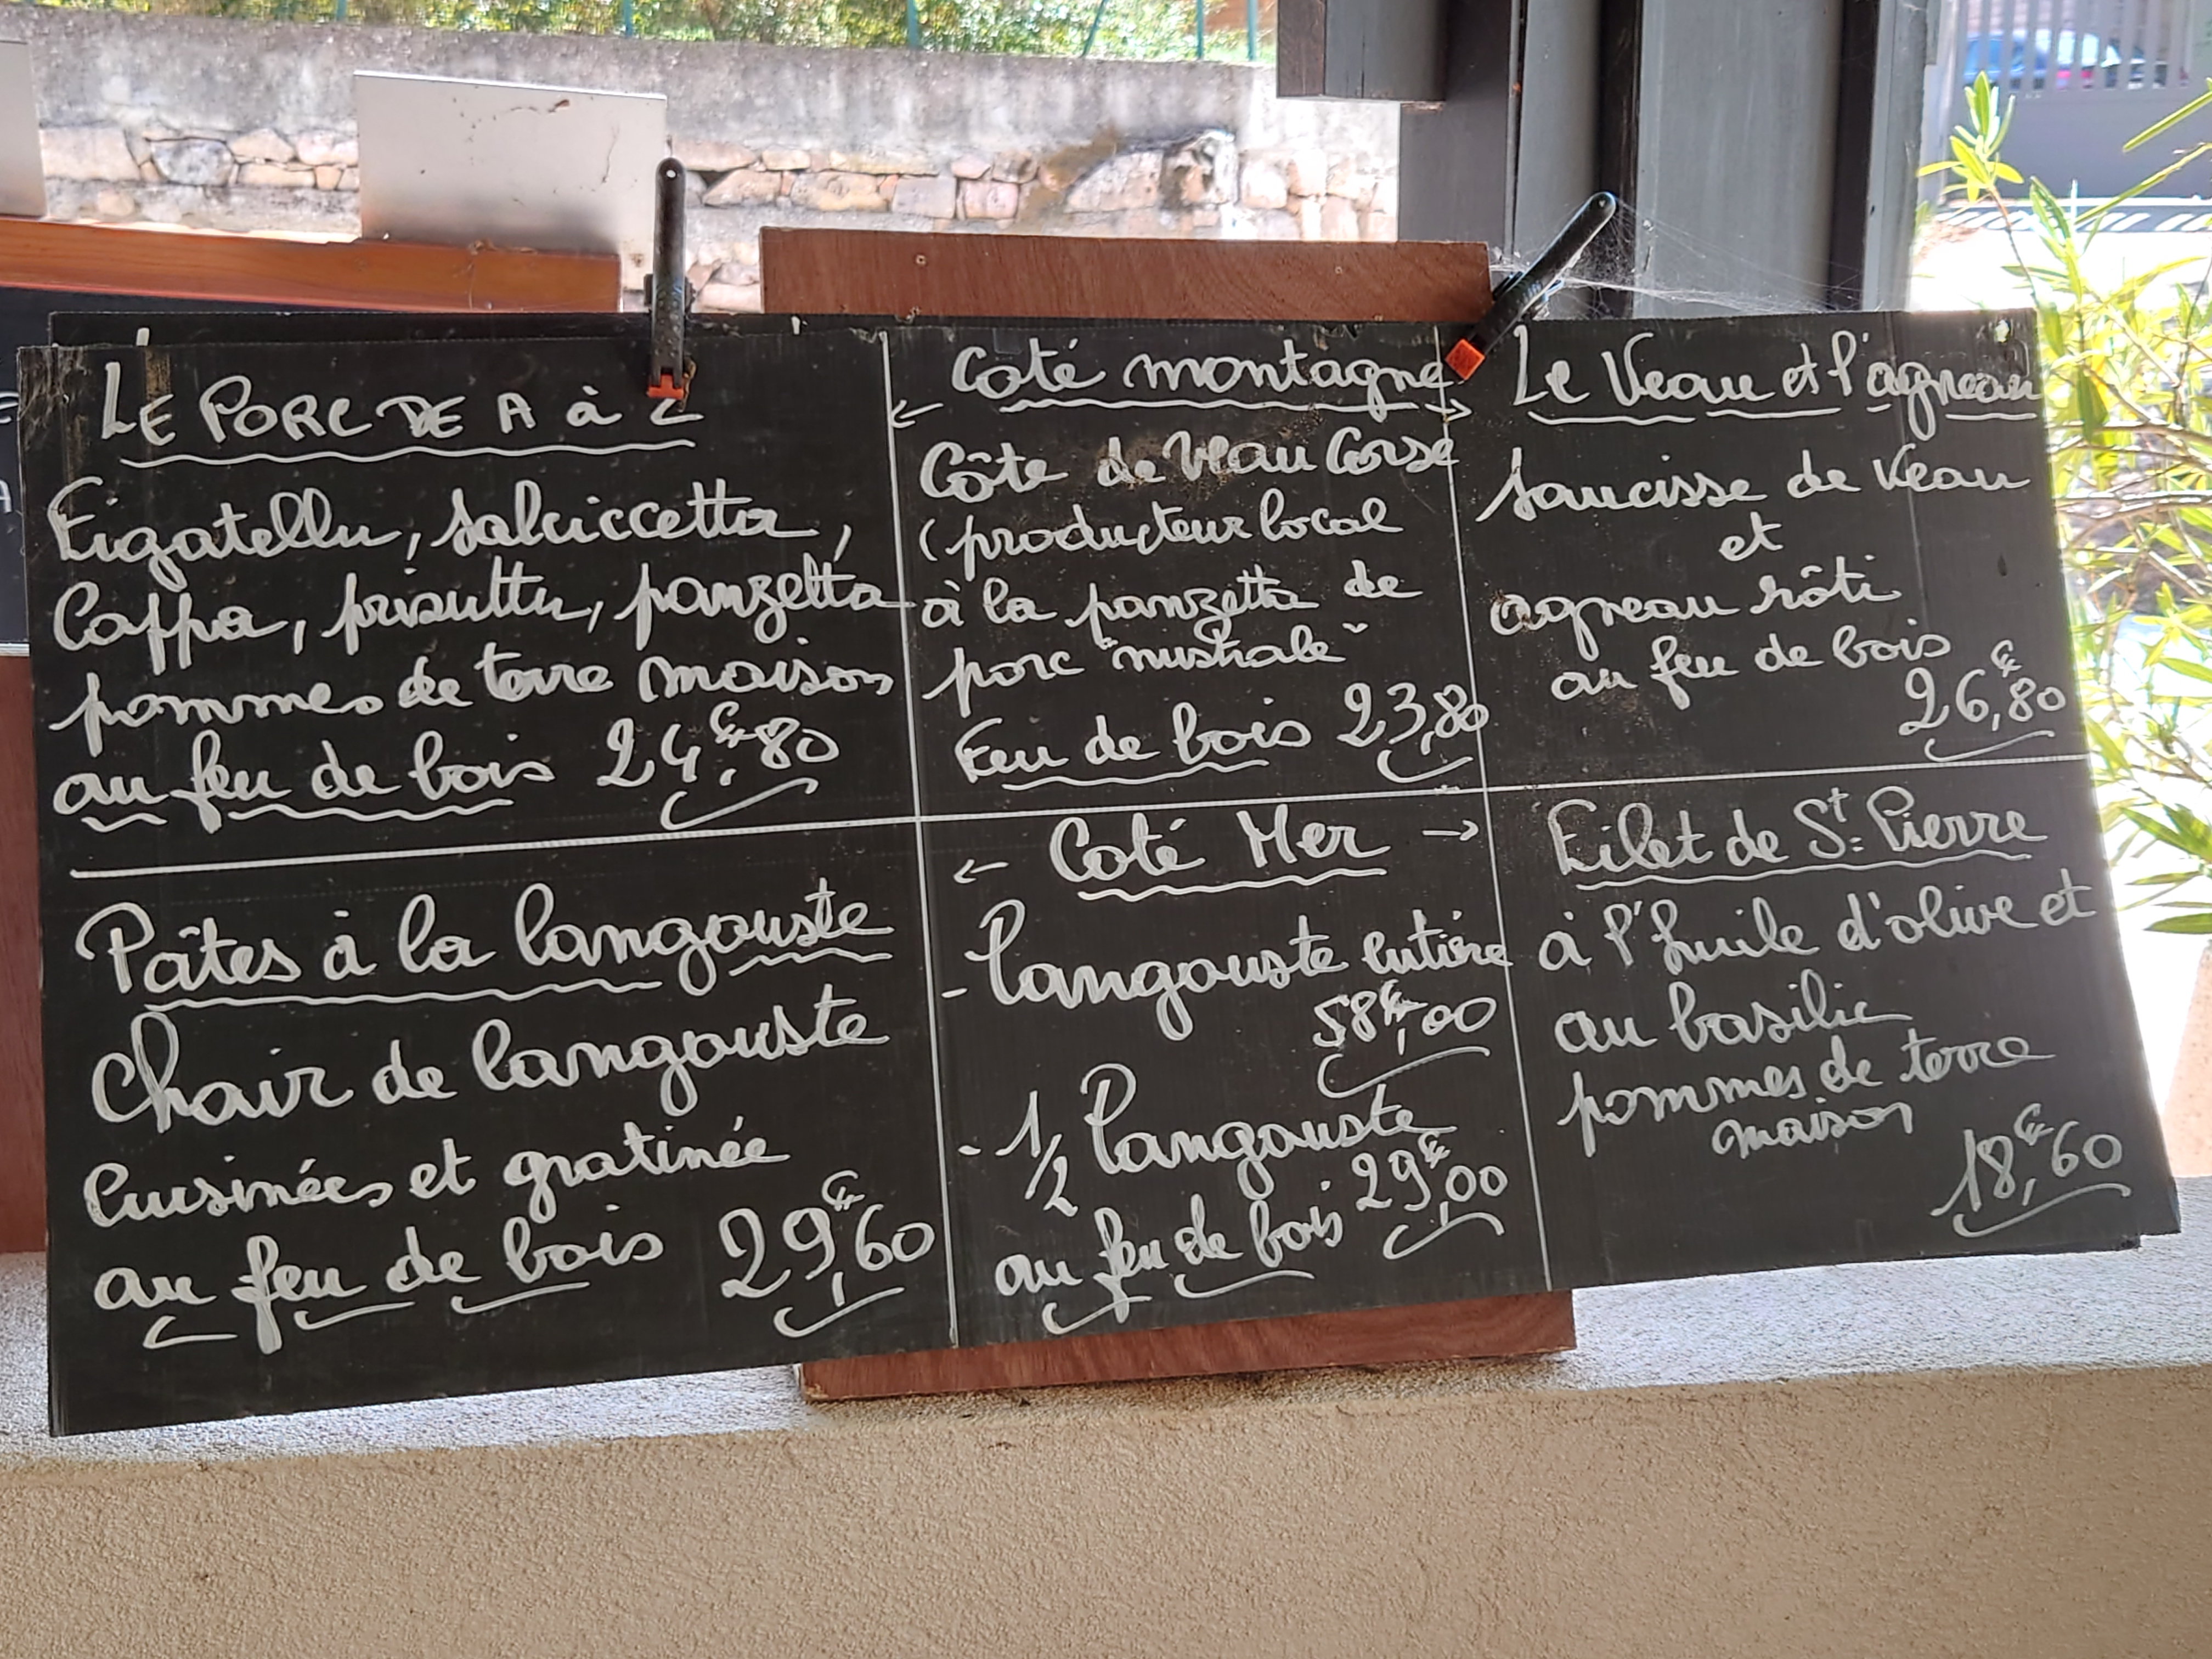 LE PORC DE A à Z
Figatellu, Salciccetta,
Coppa, prisuttu, panzetta
pommes de terre maison
au feu de bois 24€,80
← Coté montagne →
Côte de Veau Corse
(producteur local
à la panzetta de
porc "nustrale"
Feu de bois 23,80
Le Veau et l'agneau
Saucisse de Veau
et
agneau rôti
au feu de bois
26€,80
Pâtes à la langouste
Chair de langouste
Cuisinées et gratinée
au feu de bois 29€,60
← Coté Mer →
- Langouste Entière
58€,00
- 1/2 Langouste
au feu de bois 29€,00
Filet de St Pierre
à l'huile d'olive et
au basilic
pommes de terre
maison
18€,60